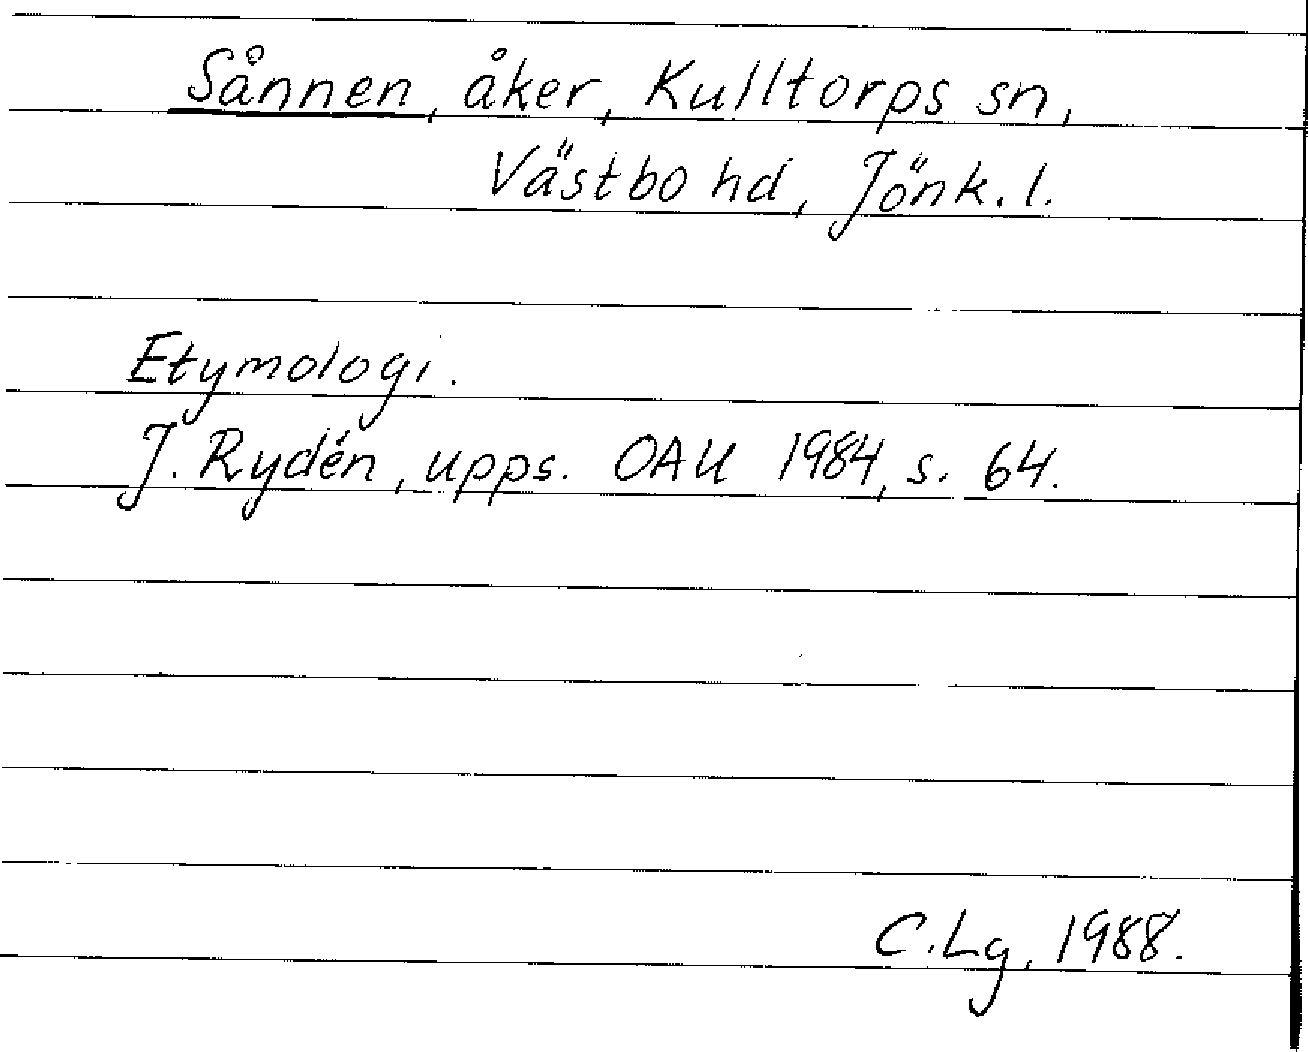 Sånnen, åker, Kulltorps sn,
Västbo hd, Jönk. l.
Etymologi.
J. Rydén, upps. OAU 1984, s. 64.
C. Lg, 1988.